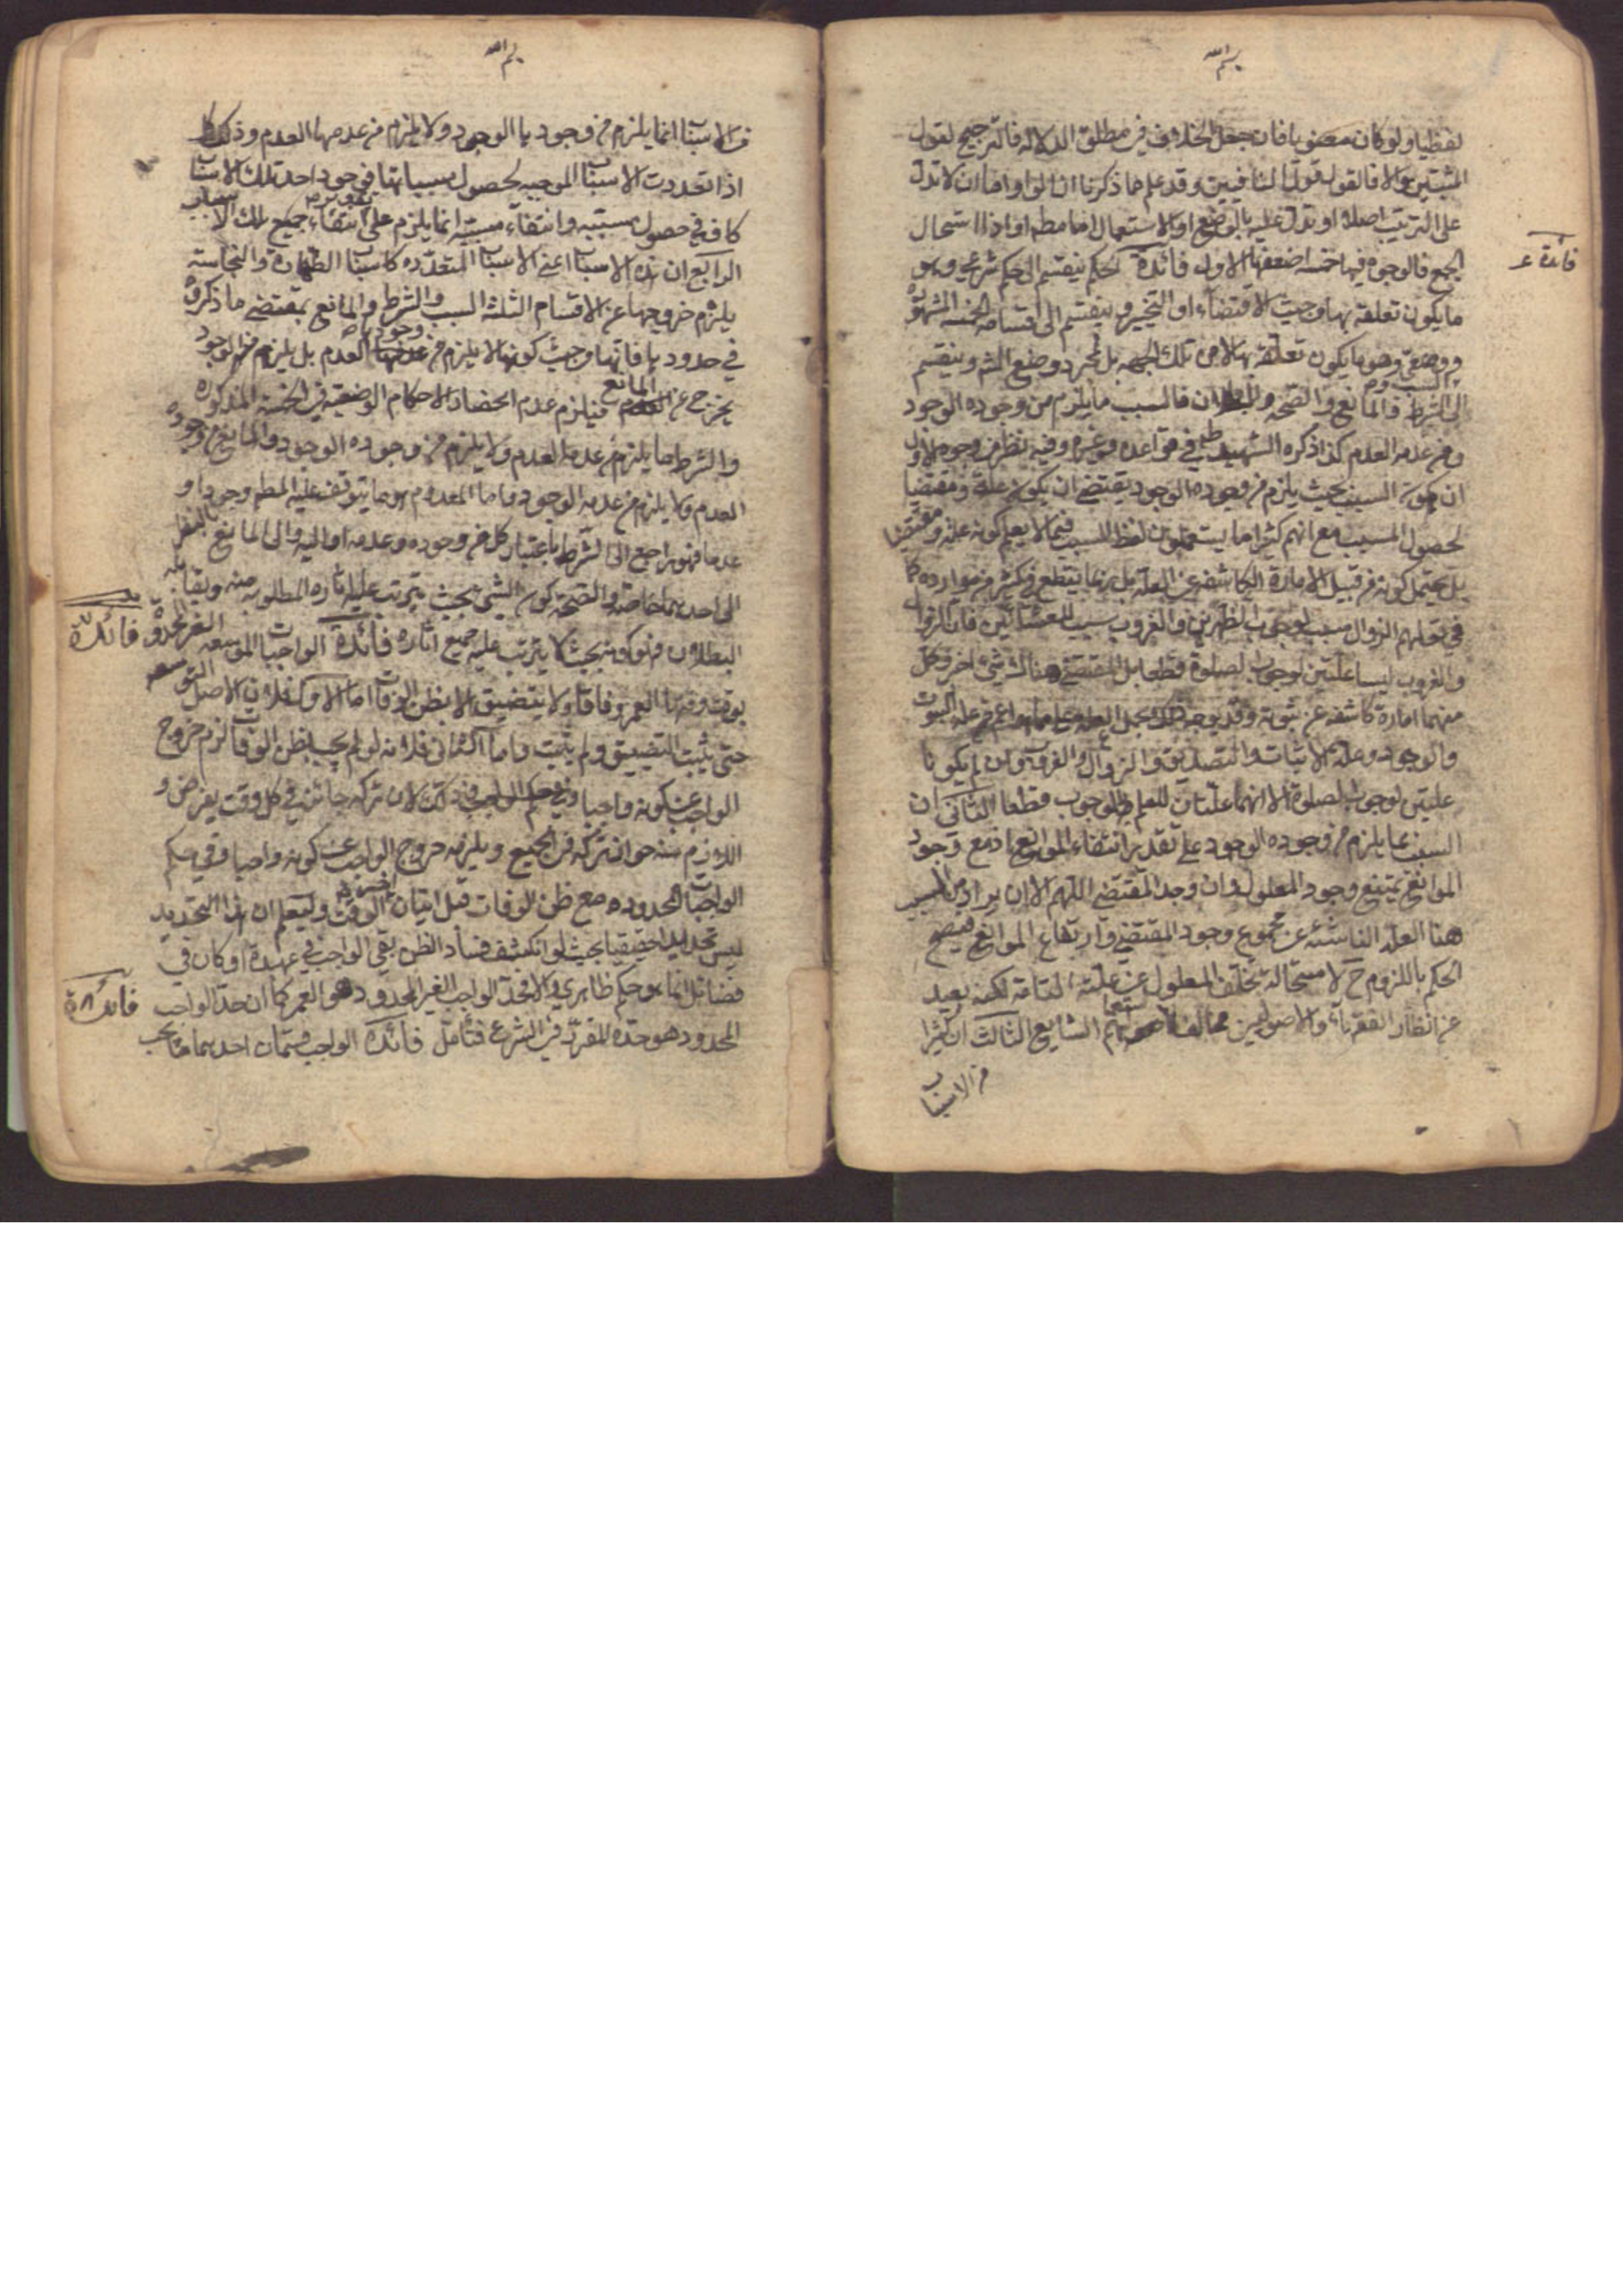 بسم الله
لفظيا ولو كان معنويا فان جعل الخلاف في مطلق الدلالة فالترجيح لقول
المثبتين والا فالقول قول النافيين وقد علم مما ذكرنا ان الواو اما ان لا تدل
على الترتيب اصلا او تدل عليه بالوضع او بالاستعمال اما مطم او اذا استحال
الجمع فالوجوه فيها خمسة اضعفها الاول فائدة الحكم ينقسم الى حكم شرعي وهو
فائدة
ما يكون تعلقه بها من حيث الاقتضاء او التخيير وينقسم الى اقسامه الخمسة المشهورة
ووضعي وهو ما يكون تعلقه بها لا من تلك الجهة بل بمجرد وضع الشر وينقسم
الى السبب و الشرط والمانع والصحة والبطلان فالسبب ما يلزم من وجوده الوجود
ومن عدمه العدم كذا ذكره الشهيد في قواعده وغيره وفيه نظر من وجوه الاول
ان كون السبب بحيث يلزم من وجوده الوجود يقتضي ان يكون علة ومقتضيا
لحصول المسبب مع انهم كثيرا ما يستعملون لفظ السبب فيما لا يعلم كونه علة ومقتضيا
بل يحتمل كونه من قبيل الامارة الكاشفة عن العلة بل ربما يقطع في كثير من موارده كما
في قولهم الزوال سبب لوجوب الظهرين والغروب سبب للعشائين فان الزوال
والغروب ليسا علتين لوجوب الصلوة قطعا بل المقتضي هناك شيء اخر وكل
منهما امارة كاشفة عن ثبوته وقد يوجه ذلك بجعل العلة اعم من علة الثبوت
والوجود وعلة الاثبات والتصديق والزوال والغروب وان لم يكونا
علتين لوجوب الصلوة الا انهما علتان للعلم بالوجوب قطعا الثاني ان
السبب انما يلزم من وجوده الوجود على تقدير انتفاء الموانع اذ مع وجود
الموانع يمتنع وجود المعلول وان وجد المقتضي اللهم الا ان يراد من السبب
هنا العلة الناشئة عن مجموع وجود المقتضي وارتفاع الموانع فيصح
الحكم باللزوم ح لاستحالة تخلف المعلول عن علته التامة لكنه بعيد
عن انظار الفقهاء والاصوليين مخالف لاستعمالهم الشايع الثالث ان كثيرا
من الاسباب
بسم الله
من الاسباب انما يلزم من وجودها الوجود ولا يلزم من عدمها العدم وذلك كما
اذا تعددت الاسباب الموجبة لحصول مسبباتها فوجود احد تلك الاسباب
كاف في حصول مسببه وانتفاء مسببه انما يلزم على تقدير انتفاء جميع تلك الاسباب
الرابع ان هذه الاسباب اعني الاسباب المتعددة كاسباب الطهارة والنجاسة
يلزم خروجها عن الاقسام الثلثة السبب والشرط والمانع بمقتضى ما ذكروه
في حدودها فانها من حيث كونها لا يلزم من وجودها العدم بل يلزم منه الوجود
يخرج عن المانع فيلزم عدم انحصار الاحكام الوضعية في الخمسة المذكورة
والشرط ما يلزم من عدمه العدم ولا يلزم من وجوده الوجود والمانع ما يلزم من وجوده
العدم ولا يلزم من عدمه الوجود واما المعدوم هو ما يتوقف عليه المطم وجودا و
عدما فهو راجع الى الشرط باعتبار كل من وجوده وعدمه او اليه والى المانع بالنظر
الى احدهما خاصة والصحة كون الشيء بحيث يترتب عليه اثاره المطلوبة منه ويقابله
البطلان فهو كونه بحيث لا يترتب عليه جميع اثاره فائدة الواجبات الموسعة الغير المحدودة
فائدة
بوقت وقتها العمر وفاقا ولا يتضيق الا بظن الوفات اما الاول فلان الاصل التوسعة
حتى يثبت التضييق ولم يثبت واما الثاني فلانه لو لم يجب بظن الوفات لزم خروج
الواجب عن كونه واجبا وفي حكم الواجب في ذلك لان تركه جائز في كل وقت يفرض و
اللازم منه جواز تركه في الجميع ويلزمه خروج الواجب عن كونه واجبا وفي حكم
الواجبات المحدودة مع ظن الوفات قبل اتيان اخر الوقت وليعلم ان هذا التحديد
ليس تحديدا حقيقيا بحيث لو انكشف فساد الظن بقي الواجب في عهدة او كان في
قضاء بل انما هو حكم ظاهري والا فحد الواجب الغير المحدود هو العمر كما ان حد الواجب
فائدة
المحدود هو حده المقرر في الشرع فتامل فائدة الواجب قسمان احدهما ما يجب